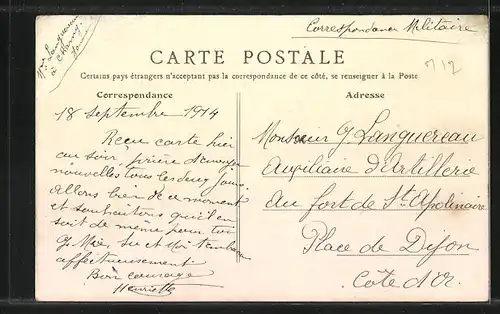 Mme Languereau
à
Correspondance Militaire
CARTE POSTALE
Certains pays étrangers n'acceptant pas la correspondance de ce côté, se renseigner à la Poste
Correspondance
18 septembre 1914
Reçu carte hier
au soir, prière d'envoyer
nouvelles tous les deux jours.
Allons bien de ce moment
et souhaitons qu'il en
soit de même pour toi
affectueusement
Bon courage
Henriette
Adresse
Monsieur G Languereau
Auxiliaire d'Artillerie
Au fort de St. Apolinaire
Place de Dijon
Côte d'Or.